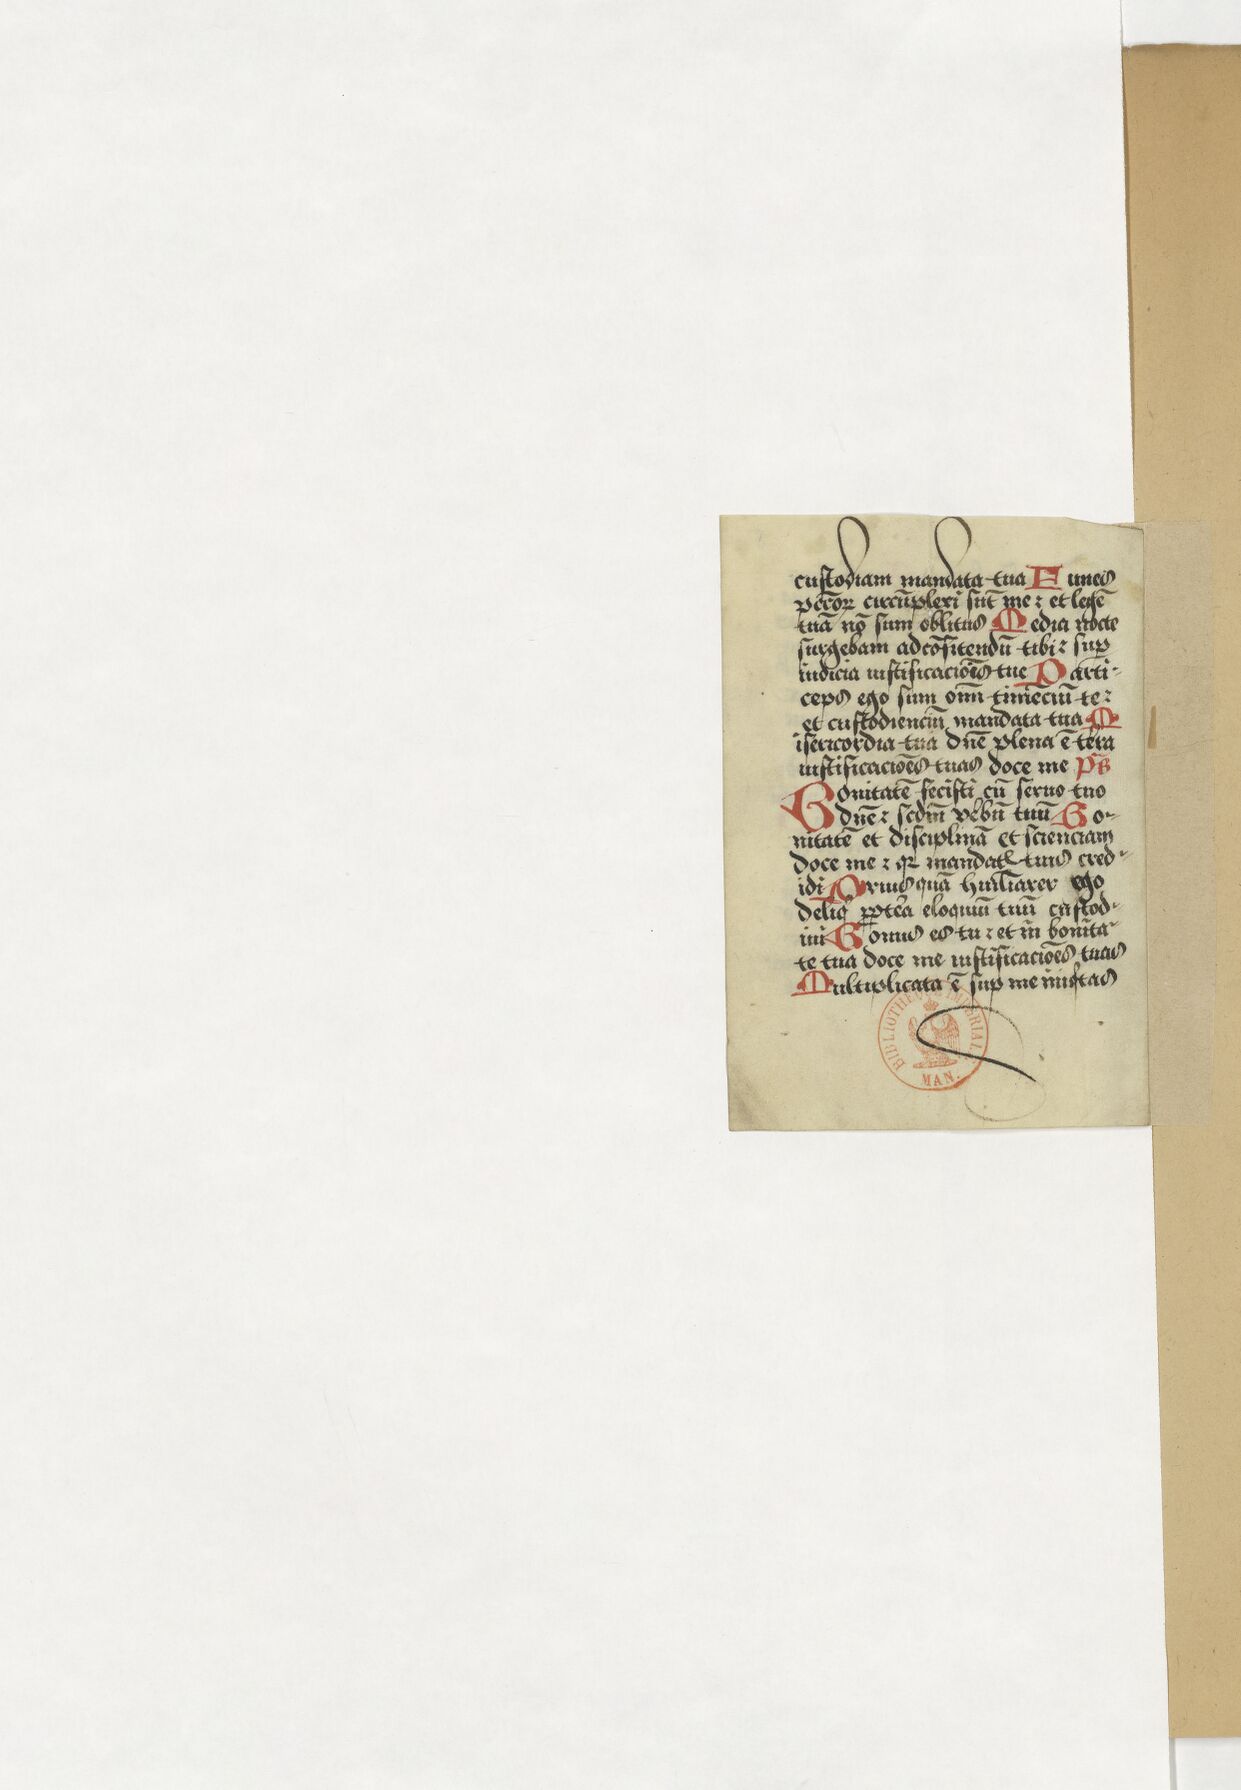 custodiam mandata tua F unes
pccōꝝ circūplexi sūt me ⁊ et legē
tuā nō sum oblitus M edia nocte
surgebam ad cōfitendū tibi ⁊ suꝑ
iudicia iustificaciōis tue P arti-
ceps ego sum oīm timēciū te ⁊
et custodienciū mandata tua M
isericordia tua dn̄e plena ē terra
iustificaciōes tuas doce me ps
B onitatē fecisti cū seruo tuo
dn̄e ⁊ scdm̄ vbū tuū B o-
nitatē et disciplinā et scienciam
doce me ⁊ qꝛ mandatꝭ tuis cred-
idi P riusquā humiliarer ego
deliq̄ ꝓpterea eloquiū tuū custod-
iui B onus es tu ⁊ et in bonita-
te tua doce me iustificaciōes tuas
M ultiplicata ē suꝑ me iniq̄tas
BIBLIOTHEQUE IMPERIALE
MAN.